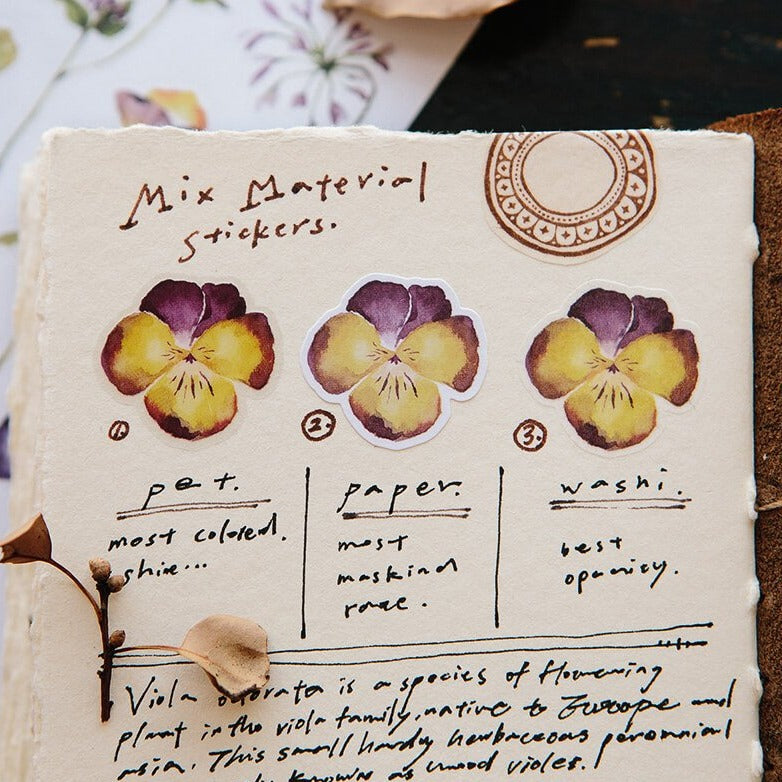 Mix Material
Stickers.
1. 2. 3.
pet. paper. washi.
most colored.
shine...
most
best
opacity.
Viola odorata is a species of flowering
plant in the viola family, native to Europe and
asia. This small hardy herbaceous perennial
known as wood violes.